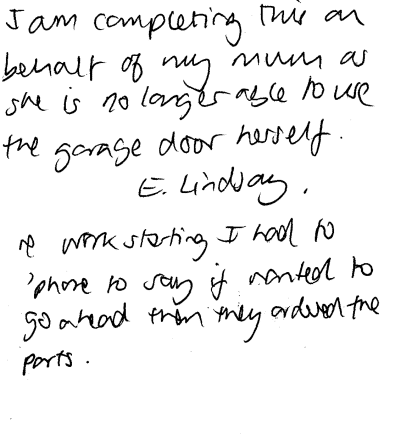 I am completing this on
behalf of my mum as
she is no longer able to use
the garage door herself.
E. Lindsay.
re work starting I had to
'phone to say if wanted to
go ahead then they ordered the
parts.